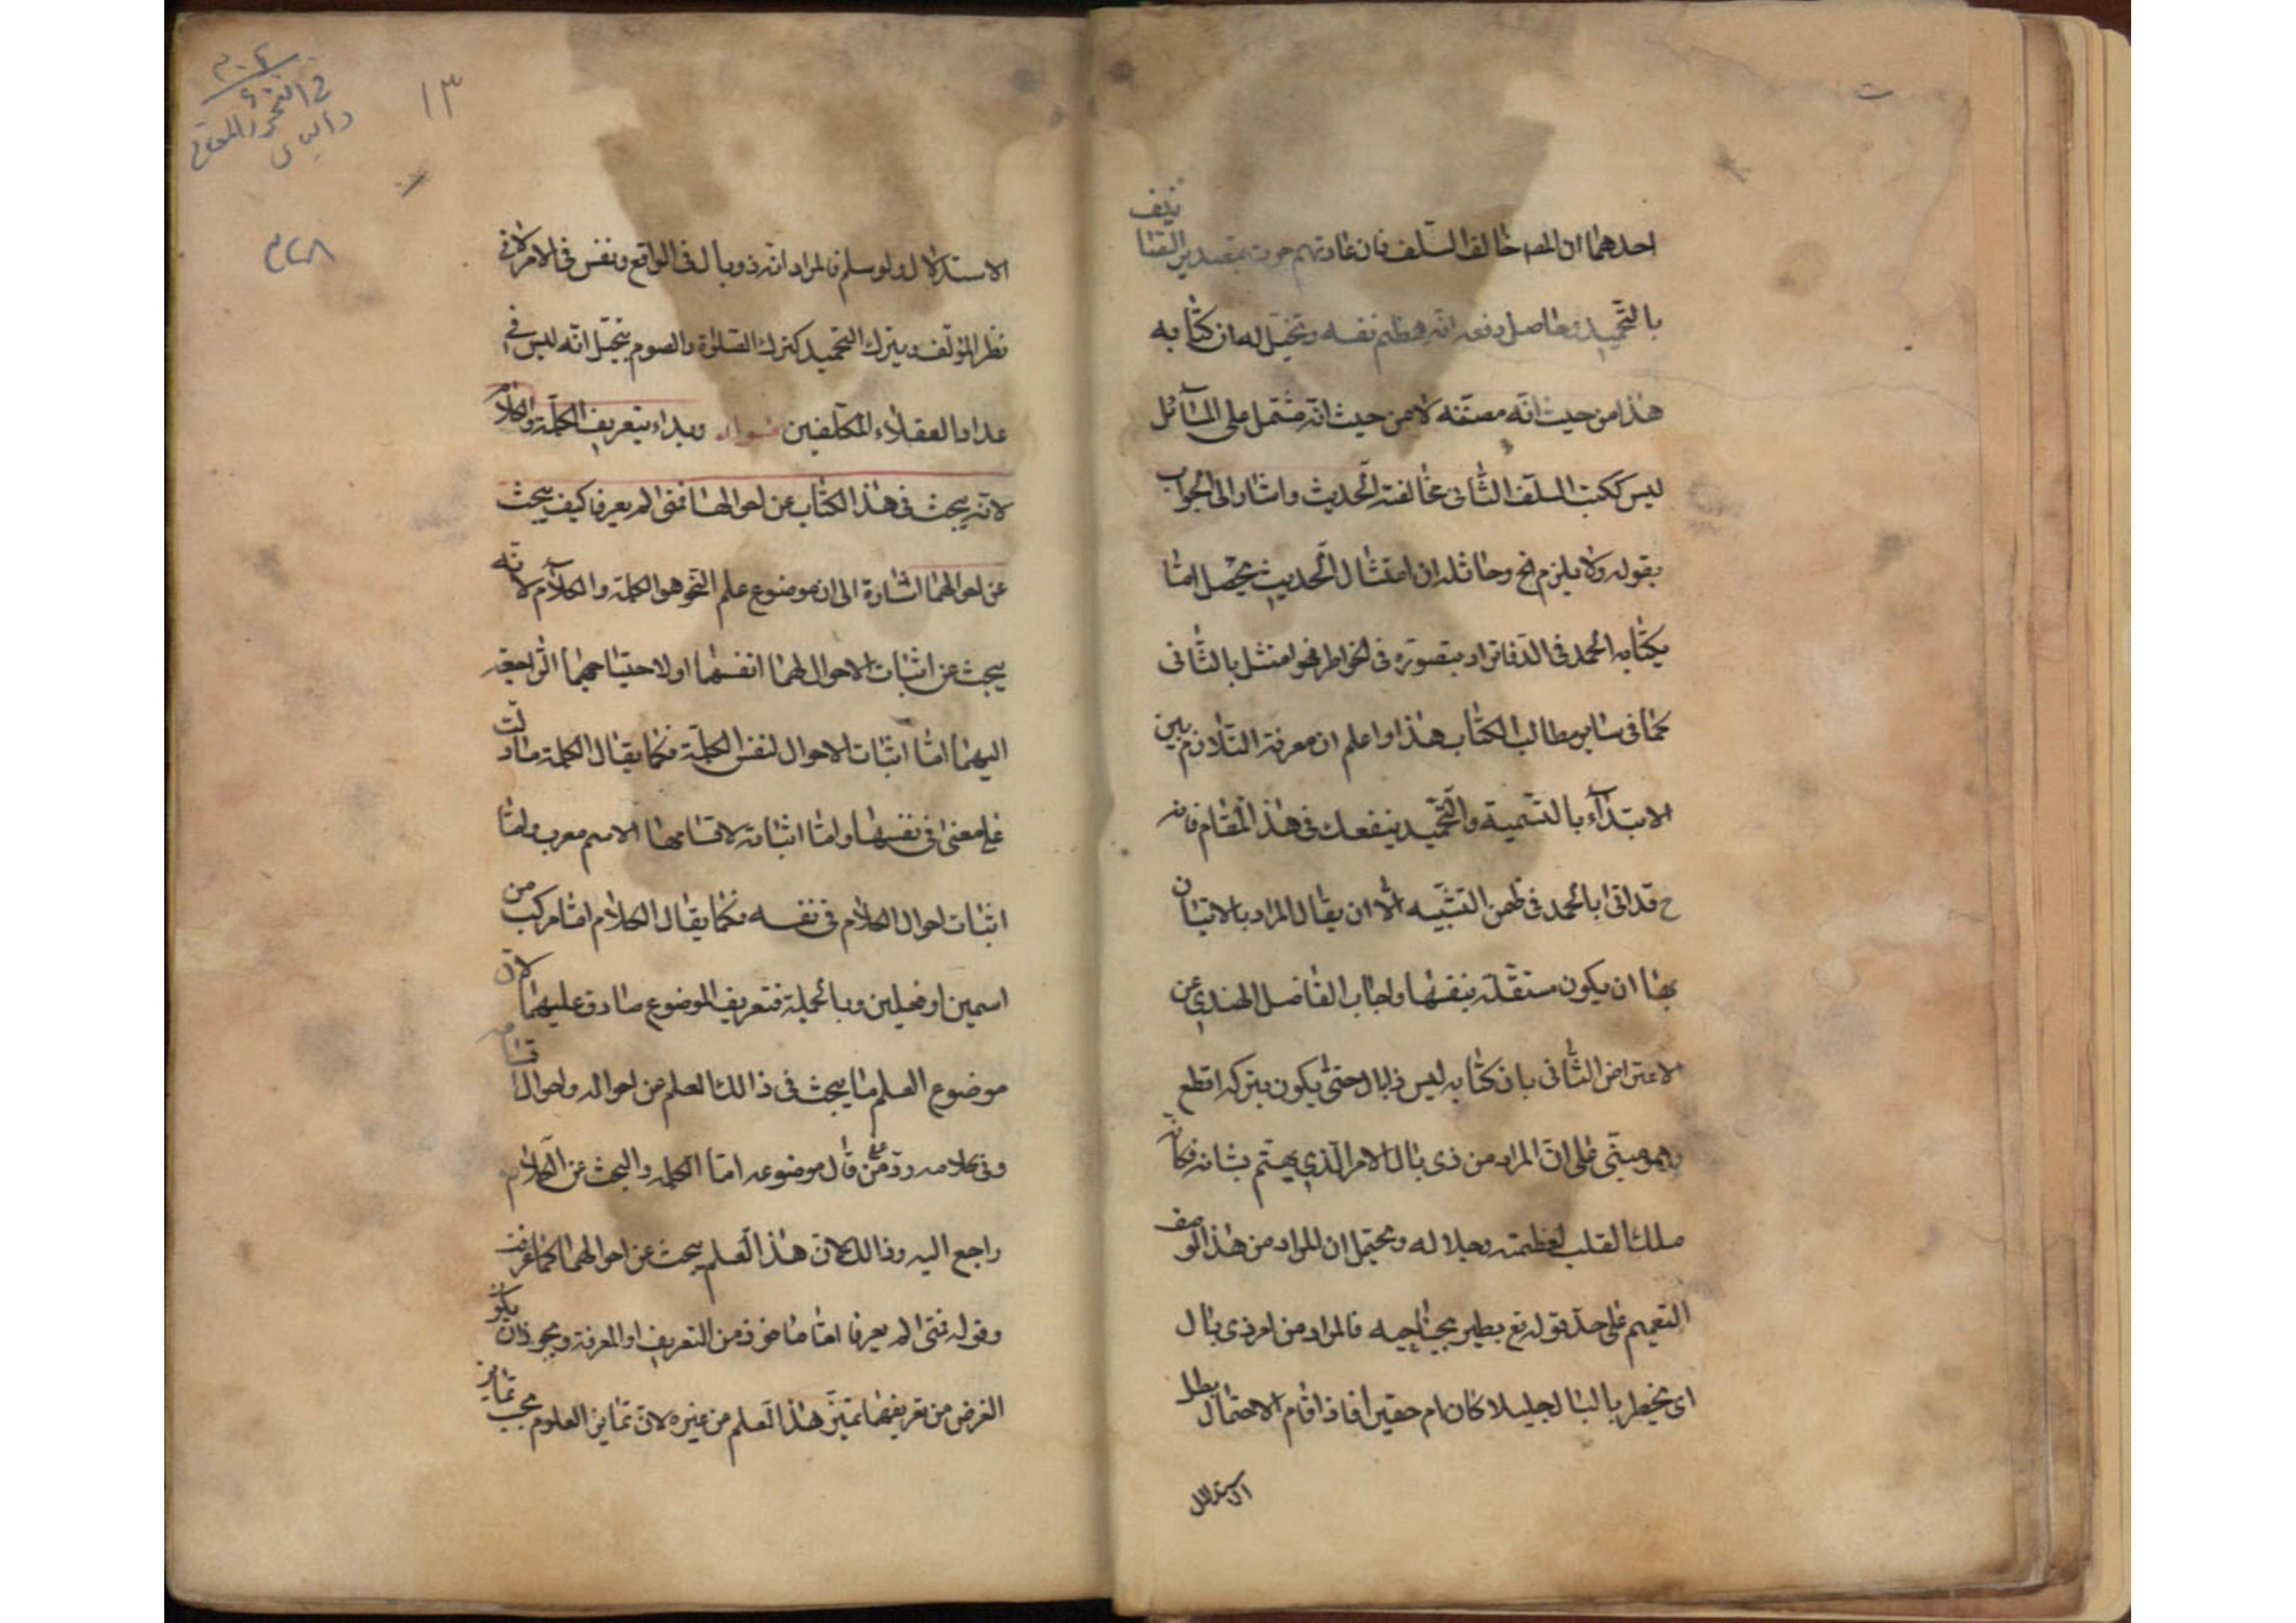 احدهما ان المصـ خالف السّلف فان عادتهم جرت بتصدير التصانيف
بالتحميد وحاصل دفعه انّه هضم نفسه وتخيّل له ان كتابه
هذا من حيث انّه مصنّفه لا من حيث انّه مشتمل على المسآئل
ليس ككتب السلف الثّانى مخالفة الحديث واشار الى الجواب
بقوله ولا يلزم الخ وحاصله ان امتثال الحديث يحصل امّا
بكتابه الحمد فى الدّفاتر او بتصوّره فى الخواطر فهو امتثل بالثّانى
كما فى ساير مطالب الكتاب هذا واعلم ان معرفة التلازم بين
الابتدآء بالتّسمية والتّحميد ينفعك فى هذا المقام فانه
ح قد اتى بالحمد فى ضمن التسّميه الّا ان يقال المراد بالاتيان
بها ان يكون مستقلّة بنفسها واجاب الفاضل الهندي عن
الاعتراض الثّانى بان كتابه ليس ذا بال حتى يكون بتركه اقطع
وهو مبتنى على انّ المراد من ذى بال الامر الّذي يهتم بشانه فكانّه
ملك القلب لعظمته وجلاله ويحتمل ان المراد من هذا الوصف
التعميم على حدّ قوله تع يطير بجناحيه فالمراد من امر ذى بال
اى يخطر بالبال جليلا كان ام حقيرا فاذا قام الاحتمال بطل
الاستدلال
١٣
الاستدلال ولو سلم فالمراد انّه ذو بال فى الواقع ونفس الامر لا فى
نظر المؤلّف وبترك التحميد كترك الصّلوة والصوم يتخيّل انّه ليس فى
عداد العقلاء المكلّفين وبداء بتعريف الكلمة والكلام
لانّه يبحث فى هذا الكتاب عن احوالهما فمتى لم يعرفا كيف يبحث
عن احوالهما اشارة الى ان موضوع علم النّحو هو الكلمة والكلام لانّه
يبحث عن اثبات الاحوال لهما انفسهما او لاحتياجهما الرّاجعة
اليهما امّا اثبات الاحوال لنفس الكلمة فكما يقال الكلمة ما دلّت
على معنى فى نفسها وامّا اثباته لاقسامها الاسم معرب وامّا
اثبات احوال الكلام فى نفسه فكما يقال الكلام امّا مركب من
اسمين او فعلين وبالجملة فتعريف الموضوع صادق عليهما لانّ
موضوع العلم ما يبحث فى ذالك العلم عن احواله واحوال اقسامه
وفى كلامه ردّ على من قال موضوعه امّا الكلمه والبحث عن الكلام
راجع اليه وذالك لانّ هذا العلم يبحث عن احوالهما كما عرفت
وقوله فمتى لم يعرفا امّا ماخوذ من التعريف او المعرفة ويجوز ان يكون
الغرض من تعريفهما تميّز هذا العلم من غيره لانّ تمايز العلوم بحسب تمايز